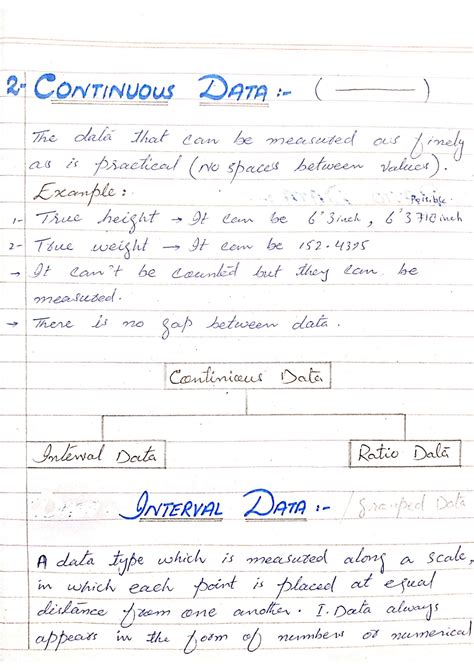 2- CONTINUOUS DATA :- ( ——— )
The data that can be measured as finely
as is practical (No spaces between values).
Example :
1- True height → It can be 6'3inch, 6'3710inch
2- True weight → It can be 152.4395
→ It can't be counted but they can be
measured.
→ There is no gap between data.
Continious Data
Interval Data Ratio Data
INTERVAL DATA :- / Grouped Data
A data type which is measured along a scale,
in which each point is placed at equal
distance from one another. I. Data always
appears in the form of numbers or numerical